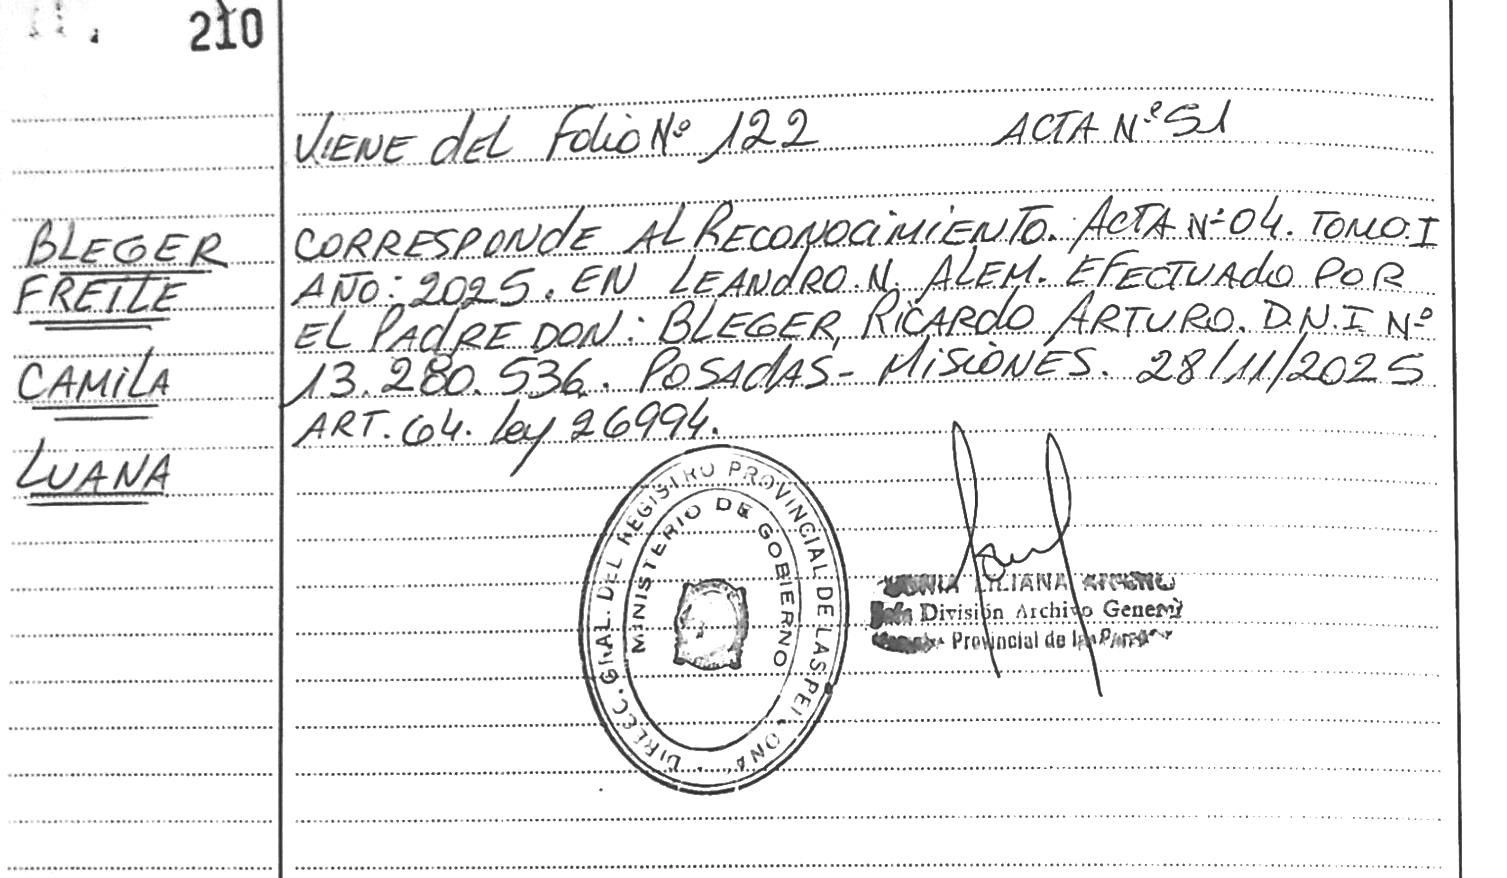 210
VIENE del Folio Nº 122 ACTA Nº 51
BLEGER
FREILE
CAMILA
LUANA
CORRESPONDE AL RECONOCIMIENTO. ACTA Nº 04. TOMO.I
AÑO: 2025. EN LEANDRO.N. ALEM. EFECTUADO POR
EL PADRE DON: BLEGER, RICARDO ARTURO. D.N.I Nº
13.280.536. POSADAS- MISIONES. 28/11/2025
ART. 64. Ley 26994.
DIREC. GRAL. DEL REGISTRO PROVINCIAL DE LAS
MINISTERIO DE GOBIERNO
LILIANA
División Archivo General
Provincial de las